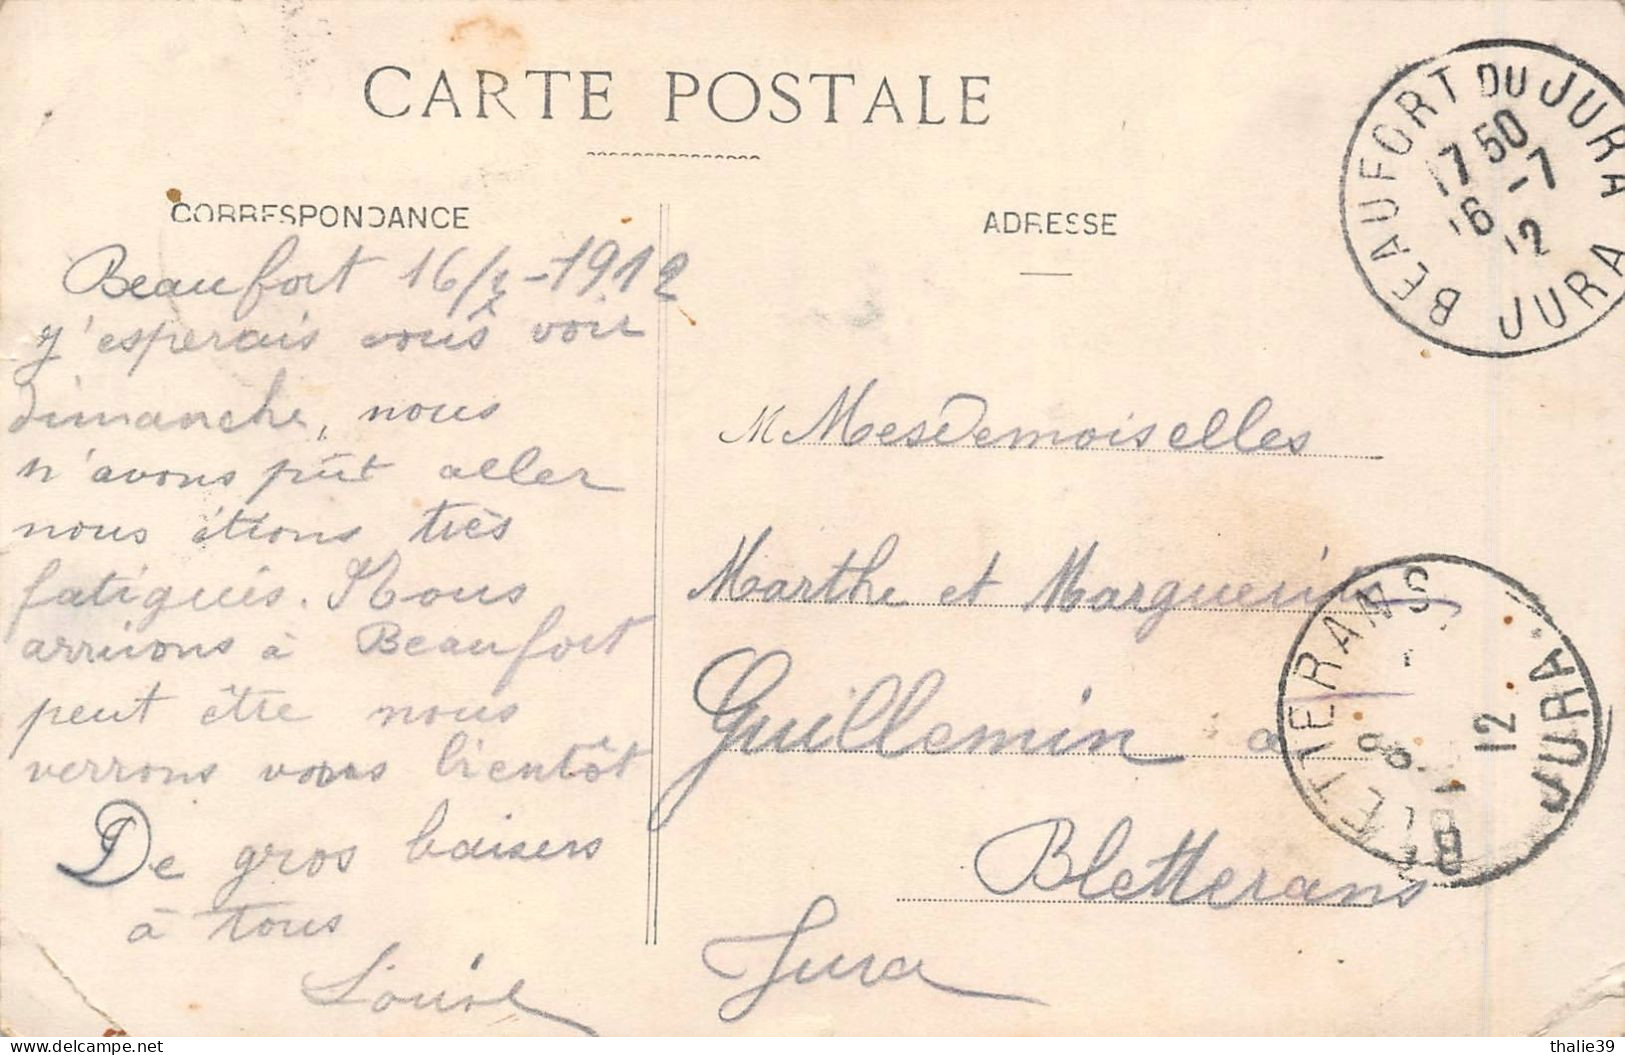 CARTE POSTALE
CORRESPONDANCE
Beaufort 16/7-1912
J'esperais vous voir
dimanche, nous
n'avons pût aller
nous étions très
fatigués. Nous
arrivons à Beaufort
peut être nous
verrons vous bientôt
De gros baisers
à tous
Louise
ADRESSE
M Mesdemoiselles
Marthe et Marguerite
Guillemin a
Bletterans
Jura
BEAUFORT DU JURA
17 50
16 -7
12
JURA
BLETTERANS
12
JURA
delcampe.net
thalie39